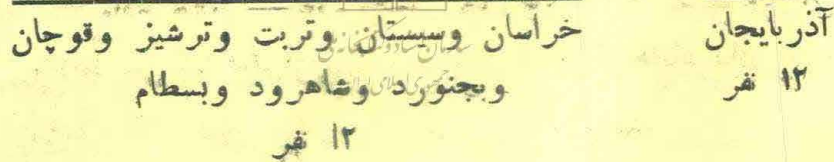 آذربایجان
۱۲ نفر
خراسان وسیستان وتربت وترشیز وقوچان
وبجنورد وشاهرود وبسطام
۱۲ نفر